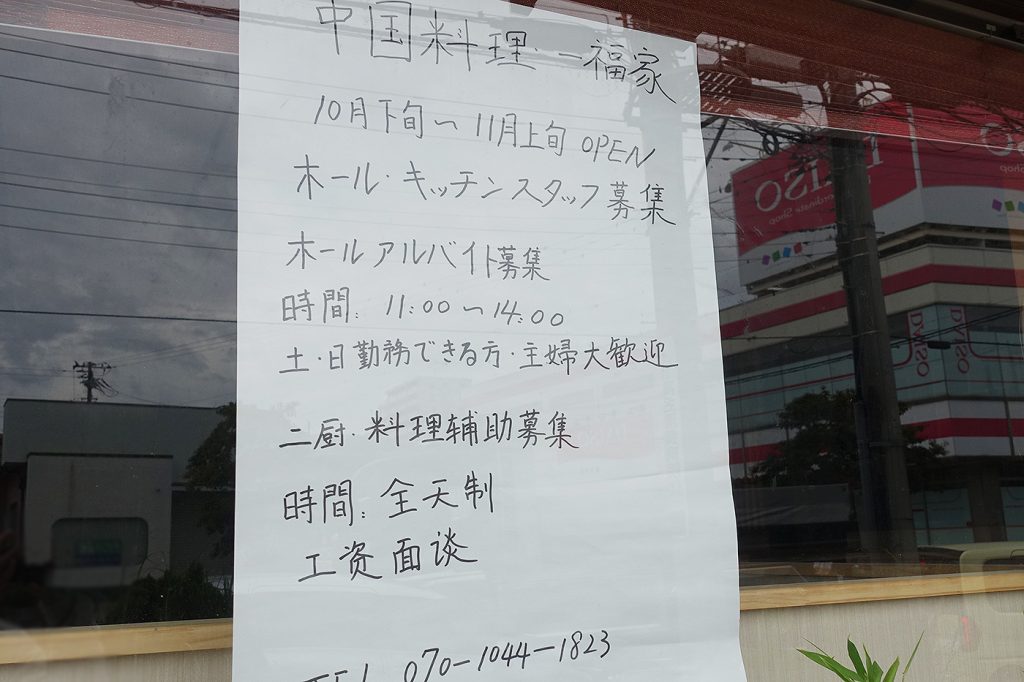 中国料理・一福家
10月下旬〜11月上旬 OPEN
ホール・キッチンスタッフ募集
ホールアルバイト募集
時間: 11:00〜14:00
土・日勤務できる方・主婦大歓迎
二厨・料理辅助募集
時間: 全天制
工资面谈
TEL 070-1044-1823
DAISO
DAISO
DAISO